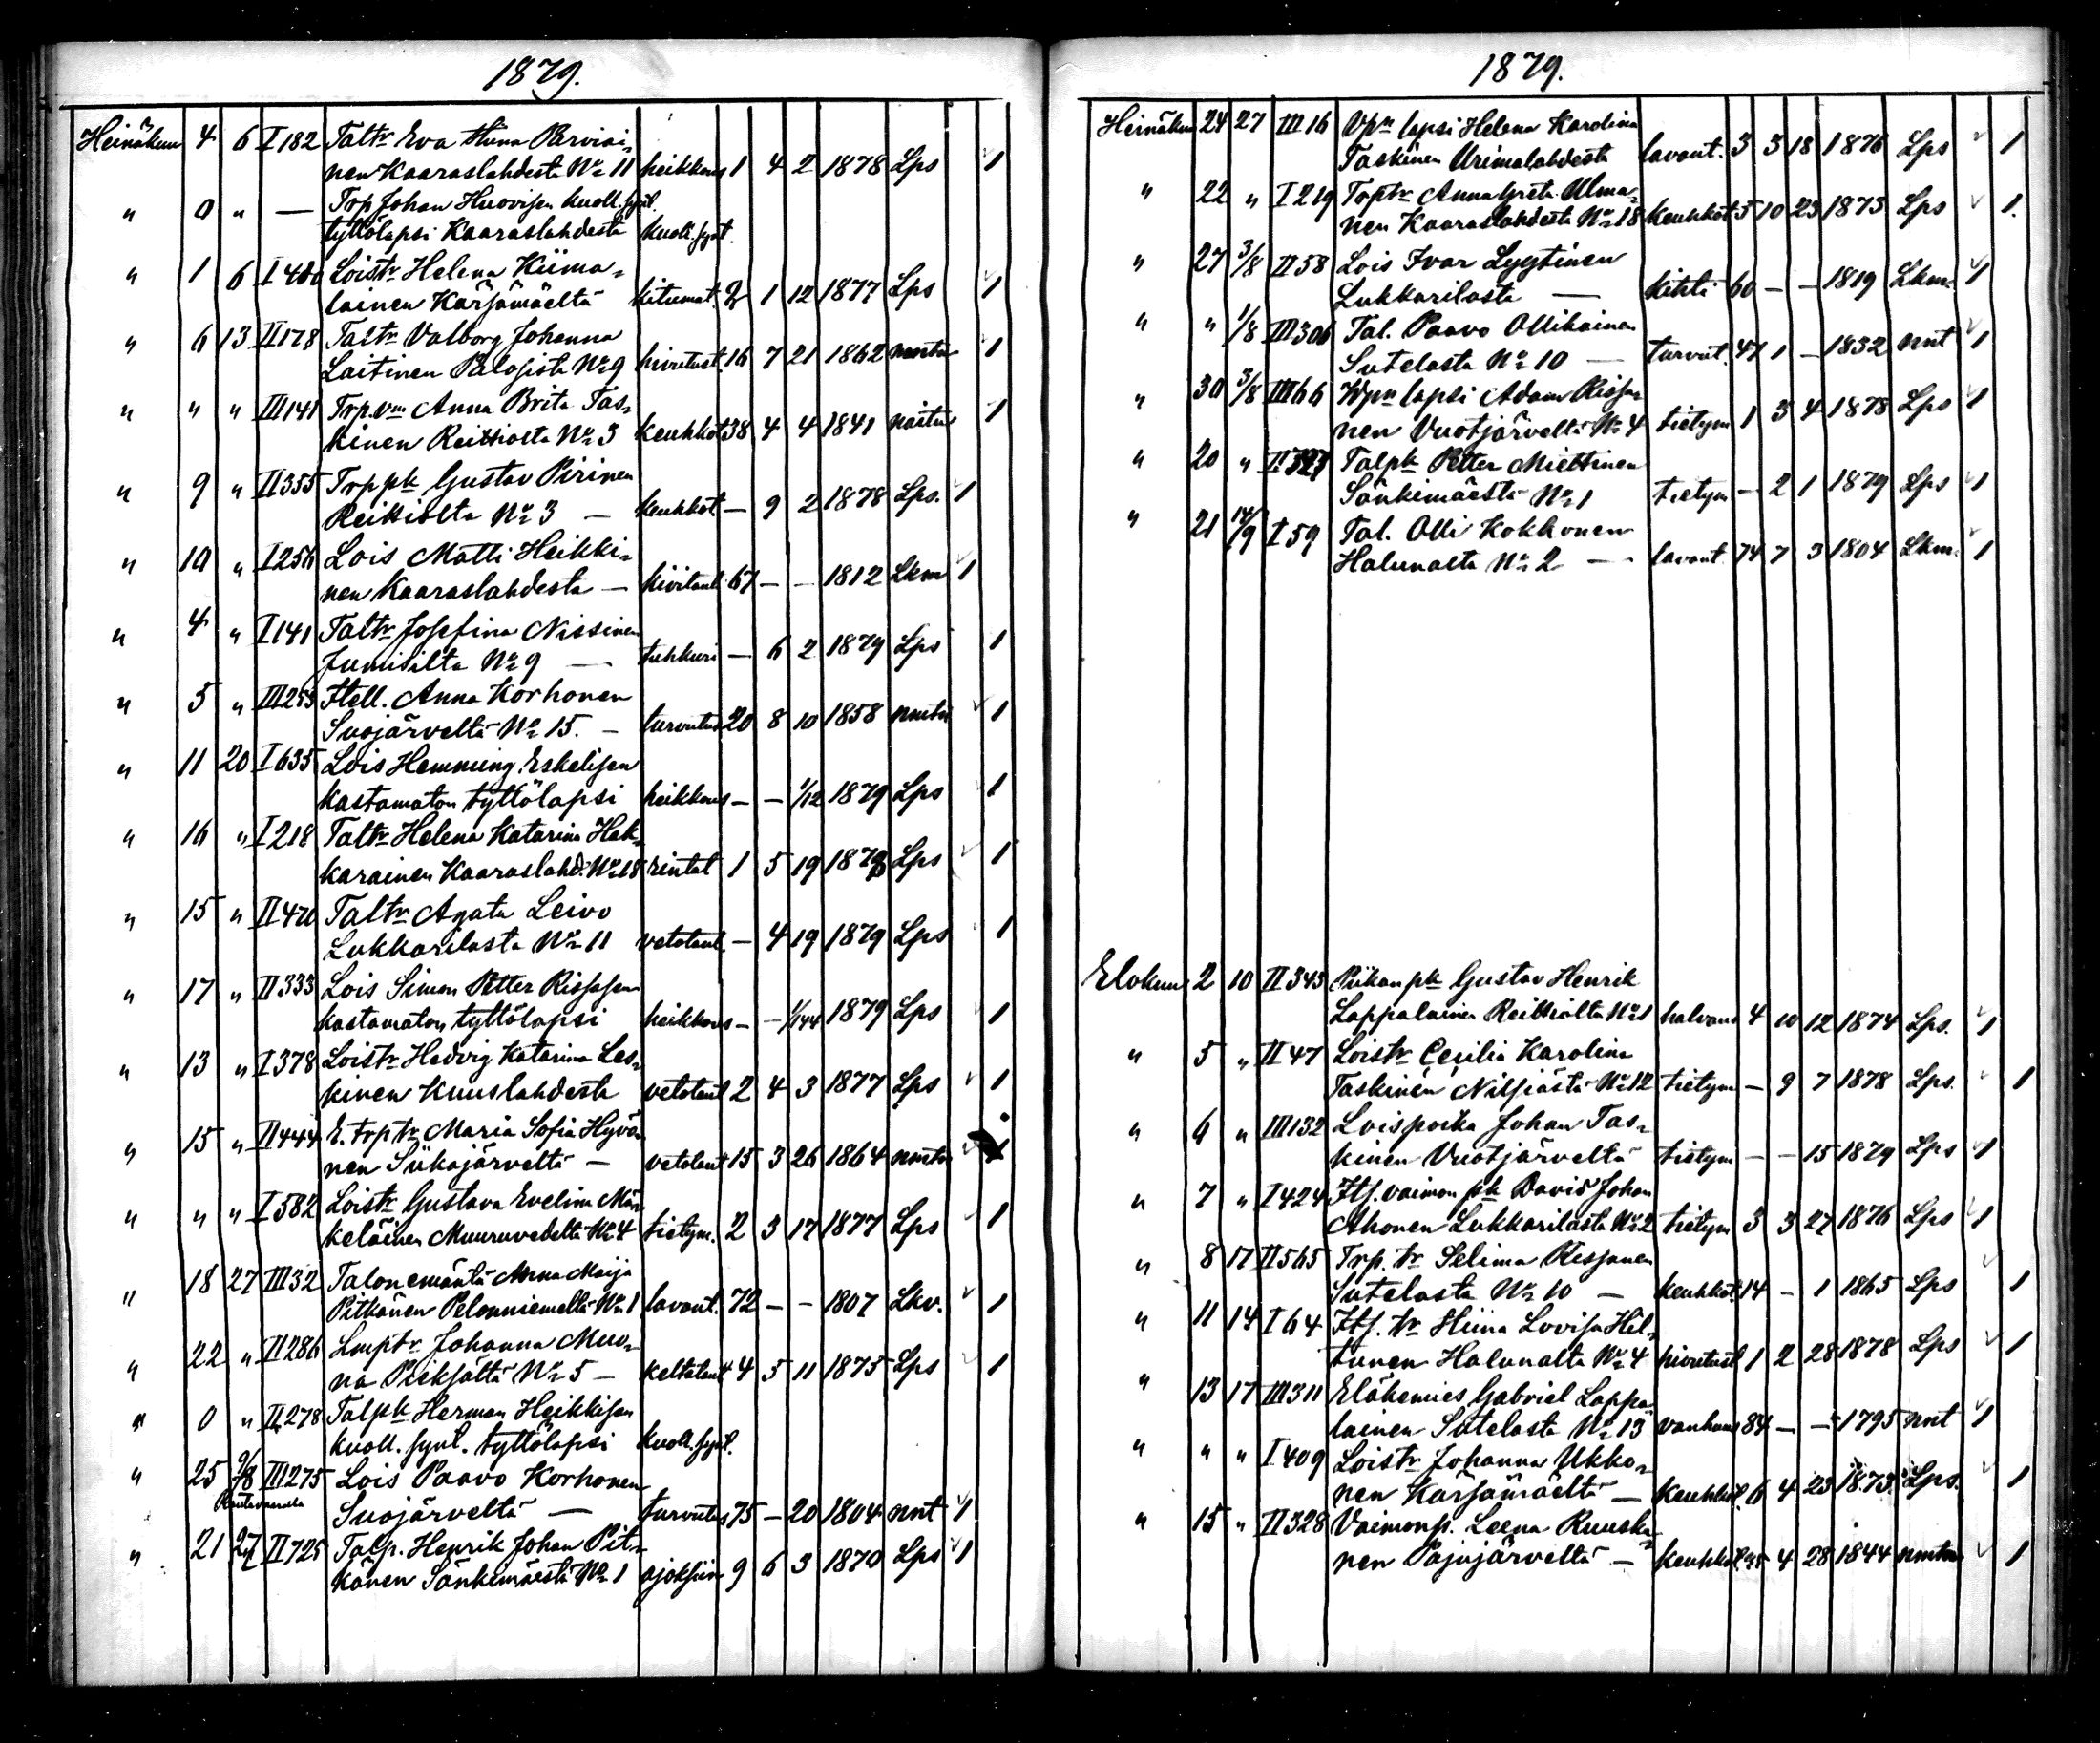 1879.
Heinäkuu 4 6 I 182 Taltr Eva Stina Parviai-
nen Kaaraslahdesta No 11 heikkous 1 4 2 1878 Lps 1
" 0 " — Trp Johan Huovisen kuoll. synt.
tyttölapsi Kaaraslahdesta kuoll. synt.
" 1 6 I 480 Loistr Helena Kiima-
lainen Kärsämäeltä kitumat. 2 1 12 1877 Lps 1
" 6 13 II 178 Taltr Valborg Johanna
Laitinen Palosista No 9 hivutust. 16 7 21 1862 nmtn 1
" " " III 141 Trp. vm Anna Brita Tas-
kinen Reittiöltä No 3 keuhkot 38 4 4 1841 naitu 1
" 9 " II 355 Trp pk Gustav Pirinen
Reittiöltä No 3 — keuhkot — 9 2 1878 Lps. 1
" 10 " I 256 Lois Matti Heikki-
nen Kaaraslahdesta — kivitaut 67 — — 1812 Lkm 1
" 4 " I 141 Taltr Josefina Nissinen
No 9 — tuhkuri — 6 2 1879 Lps 1
" 5 " III 253 Itell. Anna Korhonen
Suojärveltä No 15. — turvutus 20 8 10 1858 nmtn 1
" 11 20 I 635 Lois Hemming Eskelisen
kastamaton tyttölapsi heikkous — — 1/12 1879 Lps 1
" 16 " I 218 Taltr Helena Katarina Hak-
karainen Kaaraslahd. No 18 rintat 1 5 19 1878 Lps 1
" 15 " II 420 Taltr Agata Leivo
Lukkarilasta No 11 vetotaut. — 4 19 1879 Lps 1
" 17 " II 333 Lois Simon Petter Rissasen
kastamaton tyttölapsi heikkous — — 1/144 1879 Lps 1
" 13 " I 378 Loistr Hedvig Katarina Les-
kinen Kuuslahdesta vetotaut 2 4 3 1877 Lps 1
" 15 " II 444 E. trp tr Maria Sofia Hyvö-
nen Siikajärveltä — vetotaut 15 3 26 1864 nmtn
" " " I 582 Loistr Gustava Evelina Män-
keläinen Muuruvedeltä No 4 tietym. 2 3 17 1877 Lps 1
" 18 27 III 32 Talonemäntä Anna Maija
Pitkänen Pelonniemeltä No 1 lavant. 72 — — 1807 Lkv. 1
" 22 " II 286 Lmptr Johanna Muo-
na Pieksältä No 5 — keltataut 4 5 11 1875 Lps 1
" 0 " II 278 Talpk Herman Heikkisen
kuoll. synt. tyttölapsi kuoll. synt.
" 25 III 275 Lois Paavo Korhonen
Rautavaaralla Suojärveltä — turvutus 75 — 20 1804 nnt 1
" 21 27 II 725 Talp. Henrik Johan Pit-
känen Sänkimäestä No 1 ajoksiin 9 6 3 1870 Lps 1
1879.
Heinäkuu 24 27 III 16 Vpm lapsi Helena Karolina
Taskinen Urimalahdesta lavant. 3 3 18 1876 Lps 1
" 22 " I 219 Trptr Anna Greta Ulma-
nen Kaaraslahdesta No 18 keuhkot 5 10 23 1873 Lps 1.
" 27 3/8 II 58 Lois Ivar Lyytinen
Lukkarilasta — kihti 60 — — 1819 Lkm. 1
" " 1/8 III 306 Tal. Paavo Ollikainen
Sutelasta No 10 — turvut. 47 1 — 1832 nnt 1
" 30 3/8 III 66 Vpm lapsi Adam Rissa-
nen Vuotjärveltä No 4 tietym 1 3 4 1878 Lps 1
" 20 " II 727 Talpk Petter Miettinen
Sänkimäestä No 1 tietym — 2 1 1879 Lps 1
" 21 14/9 I 59 Tal. Olli Kokkonen
Halunalta No 2 — lavant. 74 7 3 1804 Lkm. 1
Elokuu 2 10 II 343 Piikan pk Gustav Henrik
Lappalainen Reittiöltä No 1 halvaus 4 10 12 1874 Lps. 1
" 5 " II 47 Loistr Cecilia Karolina
Taskinen Nilsiästä No 12 tietym — 9 7 1878 Lps. 1
" 6 " III 132 Loispoika Johan Tas-
kinen Vuotjärveltä tietym — — 15 1879 Lps 1
" 7 " I 424 Its. vaimon pk David Johan
Ahonen Lukkarilasta No 2 tietym 3 3 27 1876 Lps 1
" 8 17 II 565 Trp. tr Selima Rissanen
Sutelasta No 10 — keuhkot. 14 — 1 1865 Lps 1
" 11 14 I 64 Its. tr Stiina Lovisa Hil-
tunen Halunalta No 4 hivutust 1 2 28 1878 Lps 1
" 13 17 III 311 Eläkemies Gabriel Lappa-
lainen Sutelasta No 13 vanhuus 84 — — 1795 nnt 1
" " " I 409 Loistr Johanna Ukko-
nen Kärsämäeltä — keuhkot. 6 4 23 1873 Lps. 1
" 15 " II 328 Vaimonp. Leena Ruuska-
nen Pajujärveltä — keuhkot. 35 4 28 1844 nmtn 1